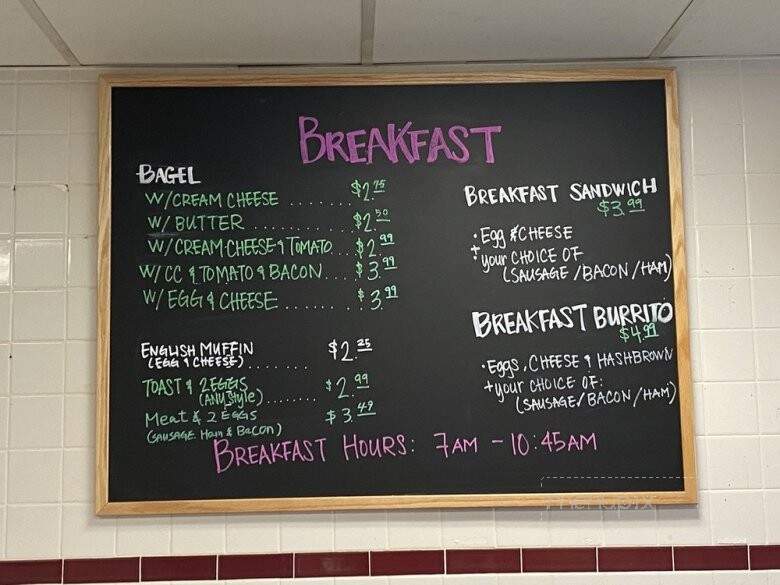 BREAKFAST
BAGEL
W/CREAM CHEESE ....... $2.75
W/ BUTTER ........... $2.50
W/CREAM CHEESE & TOMATO... $2.99
W/ CC & TOMATO & BACON... $3.99
W/ EGG & CHEESE ....... $3.99
ENGLISH MUFFIN ....... $2.25
(EGG & CHEESE)
TOAST & 2 EGGS ....... $2.99
(ANY Style)
Meat & 2 EGGS $3.49
(SAUSAGE. Ham & Bacon)
BREAKFAST SANDWICH
$3.99
• Egg & CHEESE
+ your CHOICE OF
(SAUSAGE / BACON / HAM)
BREAKFAST BURRITO
$4.99
• Eggs, CHEESE & HASHBROWN
+ your CHOICE OF:
(SAUSAGE / BACON / HAM)
BREAKFAST HOURS: 7AM - 10:45AM
menupix